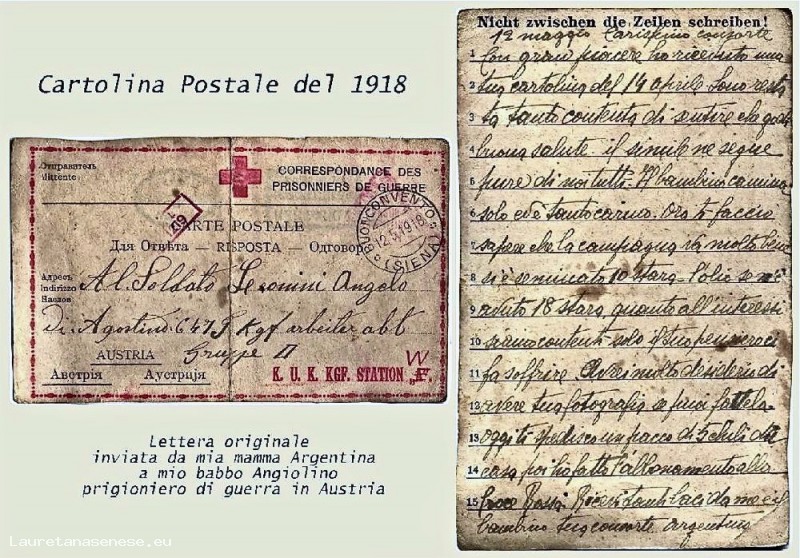 Cartolina Postale del 1918
Отправитель
Mittente
CORRESPONDANCE DES
PRISONNIERS DE GUERRE
CARTE POSTALE
Для Отвѣта — RISPOSTA — Одговор
BUONCONVENTO
12.5.1918
(SIENA)
Адресъ
Indirizzo
Наслов
Al Soldato Leonini Angelo
di Agostino 647 Kgf arbeiter abt
Gruppe II
AUSTRIA
Австрія Аустрија
W
K. U. K. KGF. STATION „F.
Lettera originale
inviata da mia mamma Argentina
a mio babbo Angiolino
prigioniero di guerra in Austria
Lauretanasenese.eu
Nicht zwischen die Zeilen schreiben!
12 maggio Carissimo consorte
1 Con gran piacere ho ricevuto una
2 tua cartolina del 19 aprile Sono resta
3 ta tanto contenta di sentire che godi
4 buona salute il simile ne segue
5 pure di noi tutti. Il bambino camina
6 solo ed è tanto carino. Ora ti faccio
7 sapere che la campagna va molto bene
8 si è seminato 10 stara l'olio se n'è
9 avuto 18 stara, quanto all'interessi
10 siamo contenti solo il tuo pensiero ci
11 fa soffrire. Avrei molto desiderio di
12 avere tua fotografia se puoi fattela
13 oggi ti spedisco un pacco di 5 chili di
14 casa poi ho fatto l'abbonamento alla
15 Croce Rossa Ricevi tanti baci da me e il
bambino tua consorte Argentina